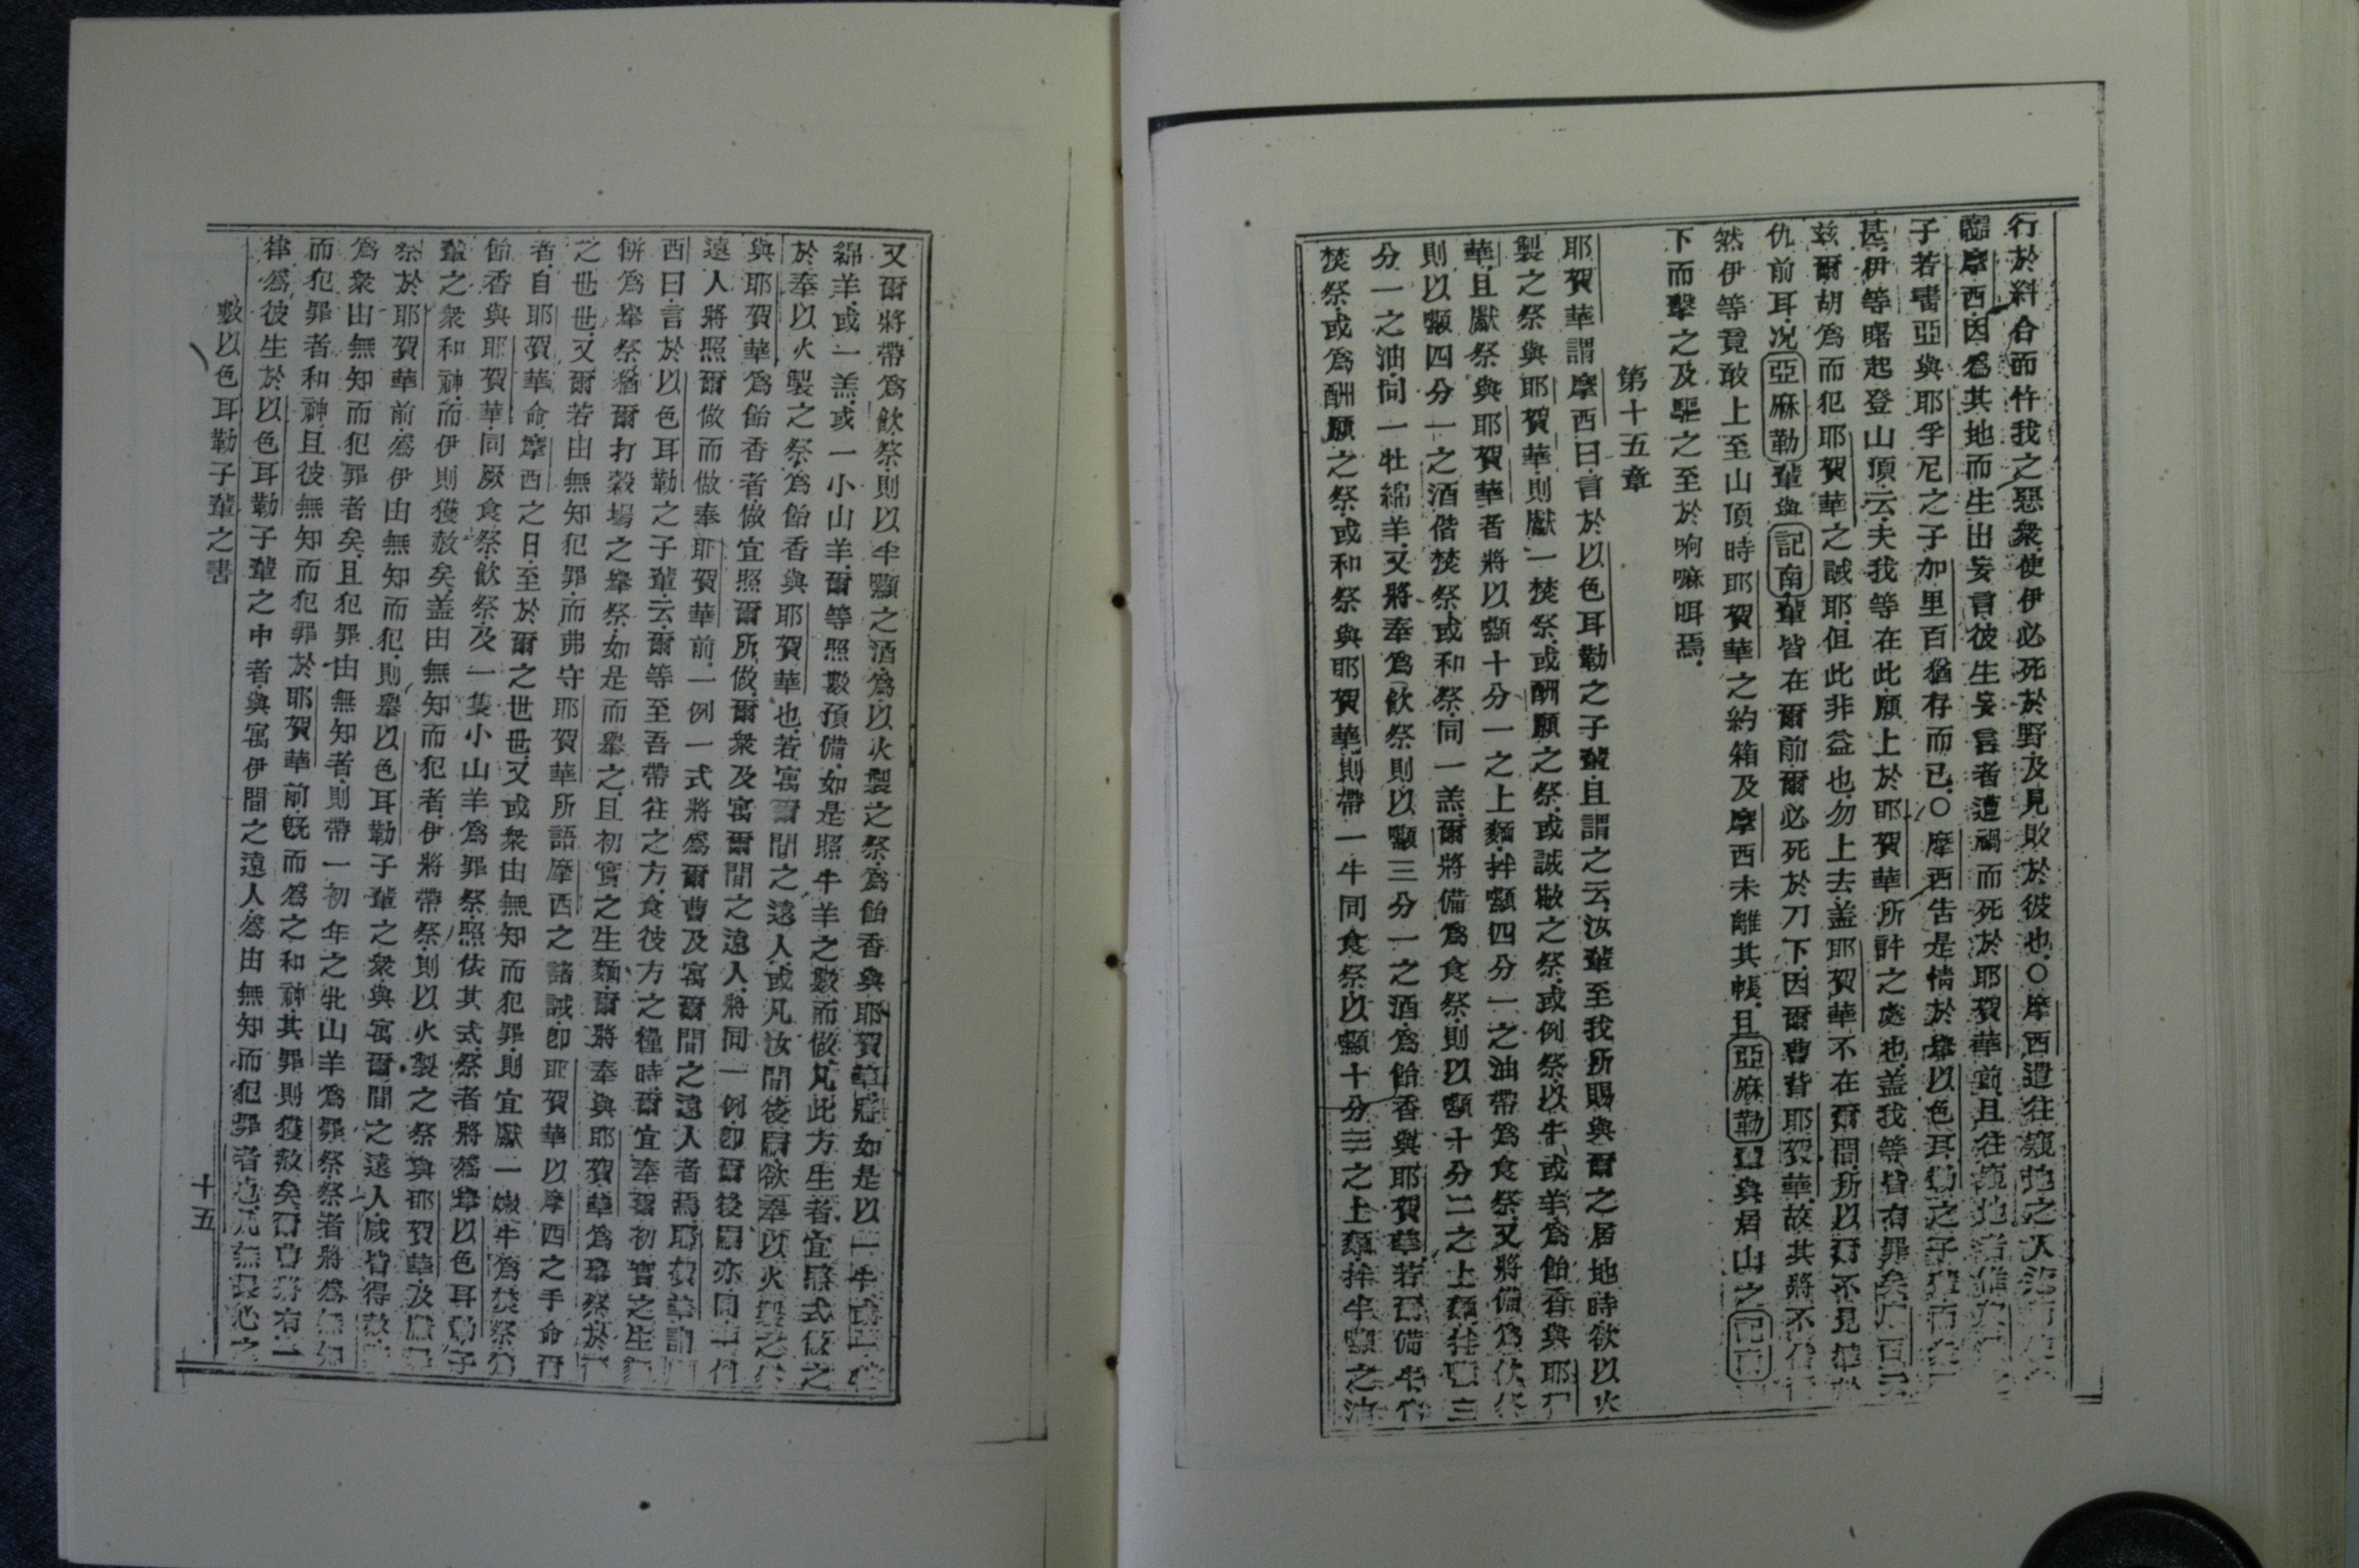 行於斜合而忤我之惡衆使伊必死於野及見敗於彼也○摩西遣往窺地之人
摩西因爲其地而生出妄言彼生妄言者遭禍而死於耶賀華前且往窺地者
子若書亞與耶孚尼之子加里百猶存而已○摩西告是情於輩以色耳勒之子
甚伊等曙起登山頂云夫我等在此願上於耶賀華所許之處也盖我等皆有罪矣
玆爾胡爲而犯耶賀華之誡耶但此非益也勿上去盖耶賀華不在爾間所以爾不見
仇前耳况亞麻勒輩與記南輩皆在爾前爾必死於刀下因爾曹背耶賀華故其將不
然伊等竟敢上至山頂時耶賀華之約箱及摩西未離其帳且亞麻勒輩與居山之記南
下而擊之及驅之至於哃嘛咡焉
第十五章
耶賀華謂摩西曰言於以色耳勒之子輩且謂之云汝輩至我所賜與爾之居地時欲以火
製之祭與耶賀華則獻一焚祭或酬願之祭或誠敬之祭或例祭以牛或羊爲飴香與耶
華且獻祭與耶賀華者將以嚽十分一之上麵拌嚽四分一之油帶爲食祭又將備爲飲祭
則以嚽四分一之酒偕焚祭或和祭同一羔爾將備爲食祭則以嚽十分二之上麵拌嚽三
分一之油同一牡綿羊又將奉爲飲祭則以嚽三分一之酒爲飴香與耶賀華若爾備牛爲
焚祭或爲酬願之祭或和祭與耶賀華則帶一牛同食祭以嚽十分三之上麵拌半嚽之油
又爾將帶爲飲祭則以半嚽之酒爲以火製之祭爲飴香與耶賀華將如是以一牛或一
綿羊或一羔或一小山羊爾等照數預備如是照牛羊之數而做凡此方生者宜照式做之
於奉以火製之祭爲飴香與耶賀華也若寓爾間之遠人或凡汝間後嗣欲奉以火製之祭
與耶賀華爲飴香者做宜照爾所做爾衆及寓爾間之遠人將同一例卽爾後嗣亦同一例
遠人將照爾做而做奉耶賀華前一例一式將爲爾曹及寓爾間之遠人者焉耶賀華謂摩
西曰言於以色耳勒之子輩云爾等至吾帶往之方食彼方之糧時爾宜奉舉初實之生麵
餅爲舉祭猶爾打穀場之舉祭如是而舉之且初實之生麵爾將奉與耶賀華爲舉祭於爾
之世世又爾若由無知犯罪而弗守耶賀華所語摩西之諸誡卽耶賀華以摩西之手命爾
者自耶賀華命摩西之日至於爾之世世又或衆由無知而犯罪則宜獻一嫩牛爲焚祭爲
飴香與耶賀華同厥食祭飲祭及一隻小山羊爲罪祭照依其式祭者將爲舉以色耳勒子
輩之衆和神而伊則獲赦矣盖由無知而犯者伊將帶祭則以火製之祭與耶賀華及厥罪
祭於耶賀華前爲伊由無知而犯則舉以色耳勒子輩之衆與寓爾間之遠人咸皆得赦
爲衆由無知而犯罪者矣且犯罪由無知者則帶一初年之牝山羊爲罪祭祭者將爲無知
而犯罪者和神且彼無知而犯罪於耶賀華前旣而爲之和神其罪則獲赦矣爾曹將有一
律爲彼生於以色耳勒子輩之中者與寓伊間之遠人爲由無知而犯罪者也
數以色耳勒子輩之書
十五